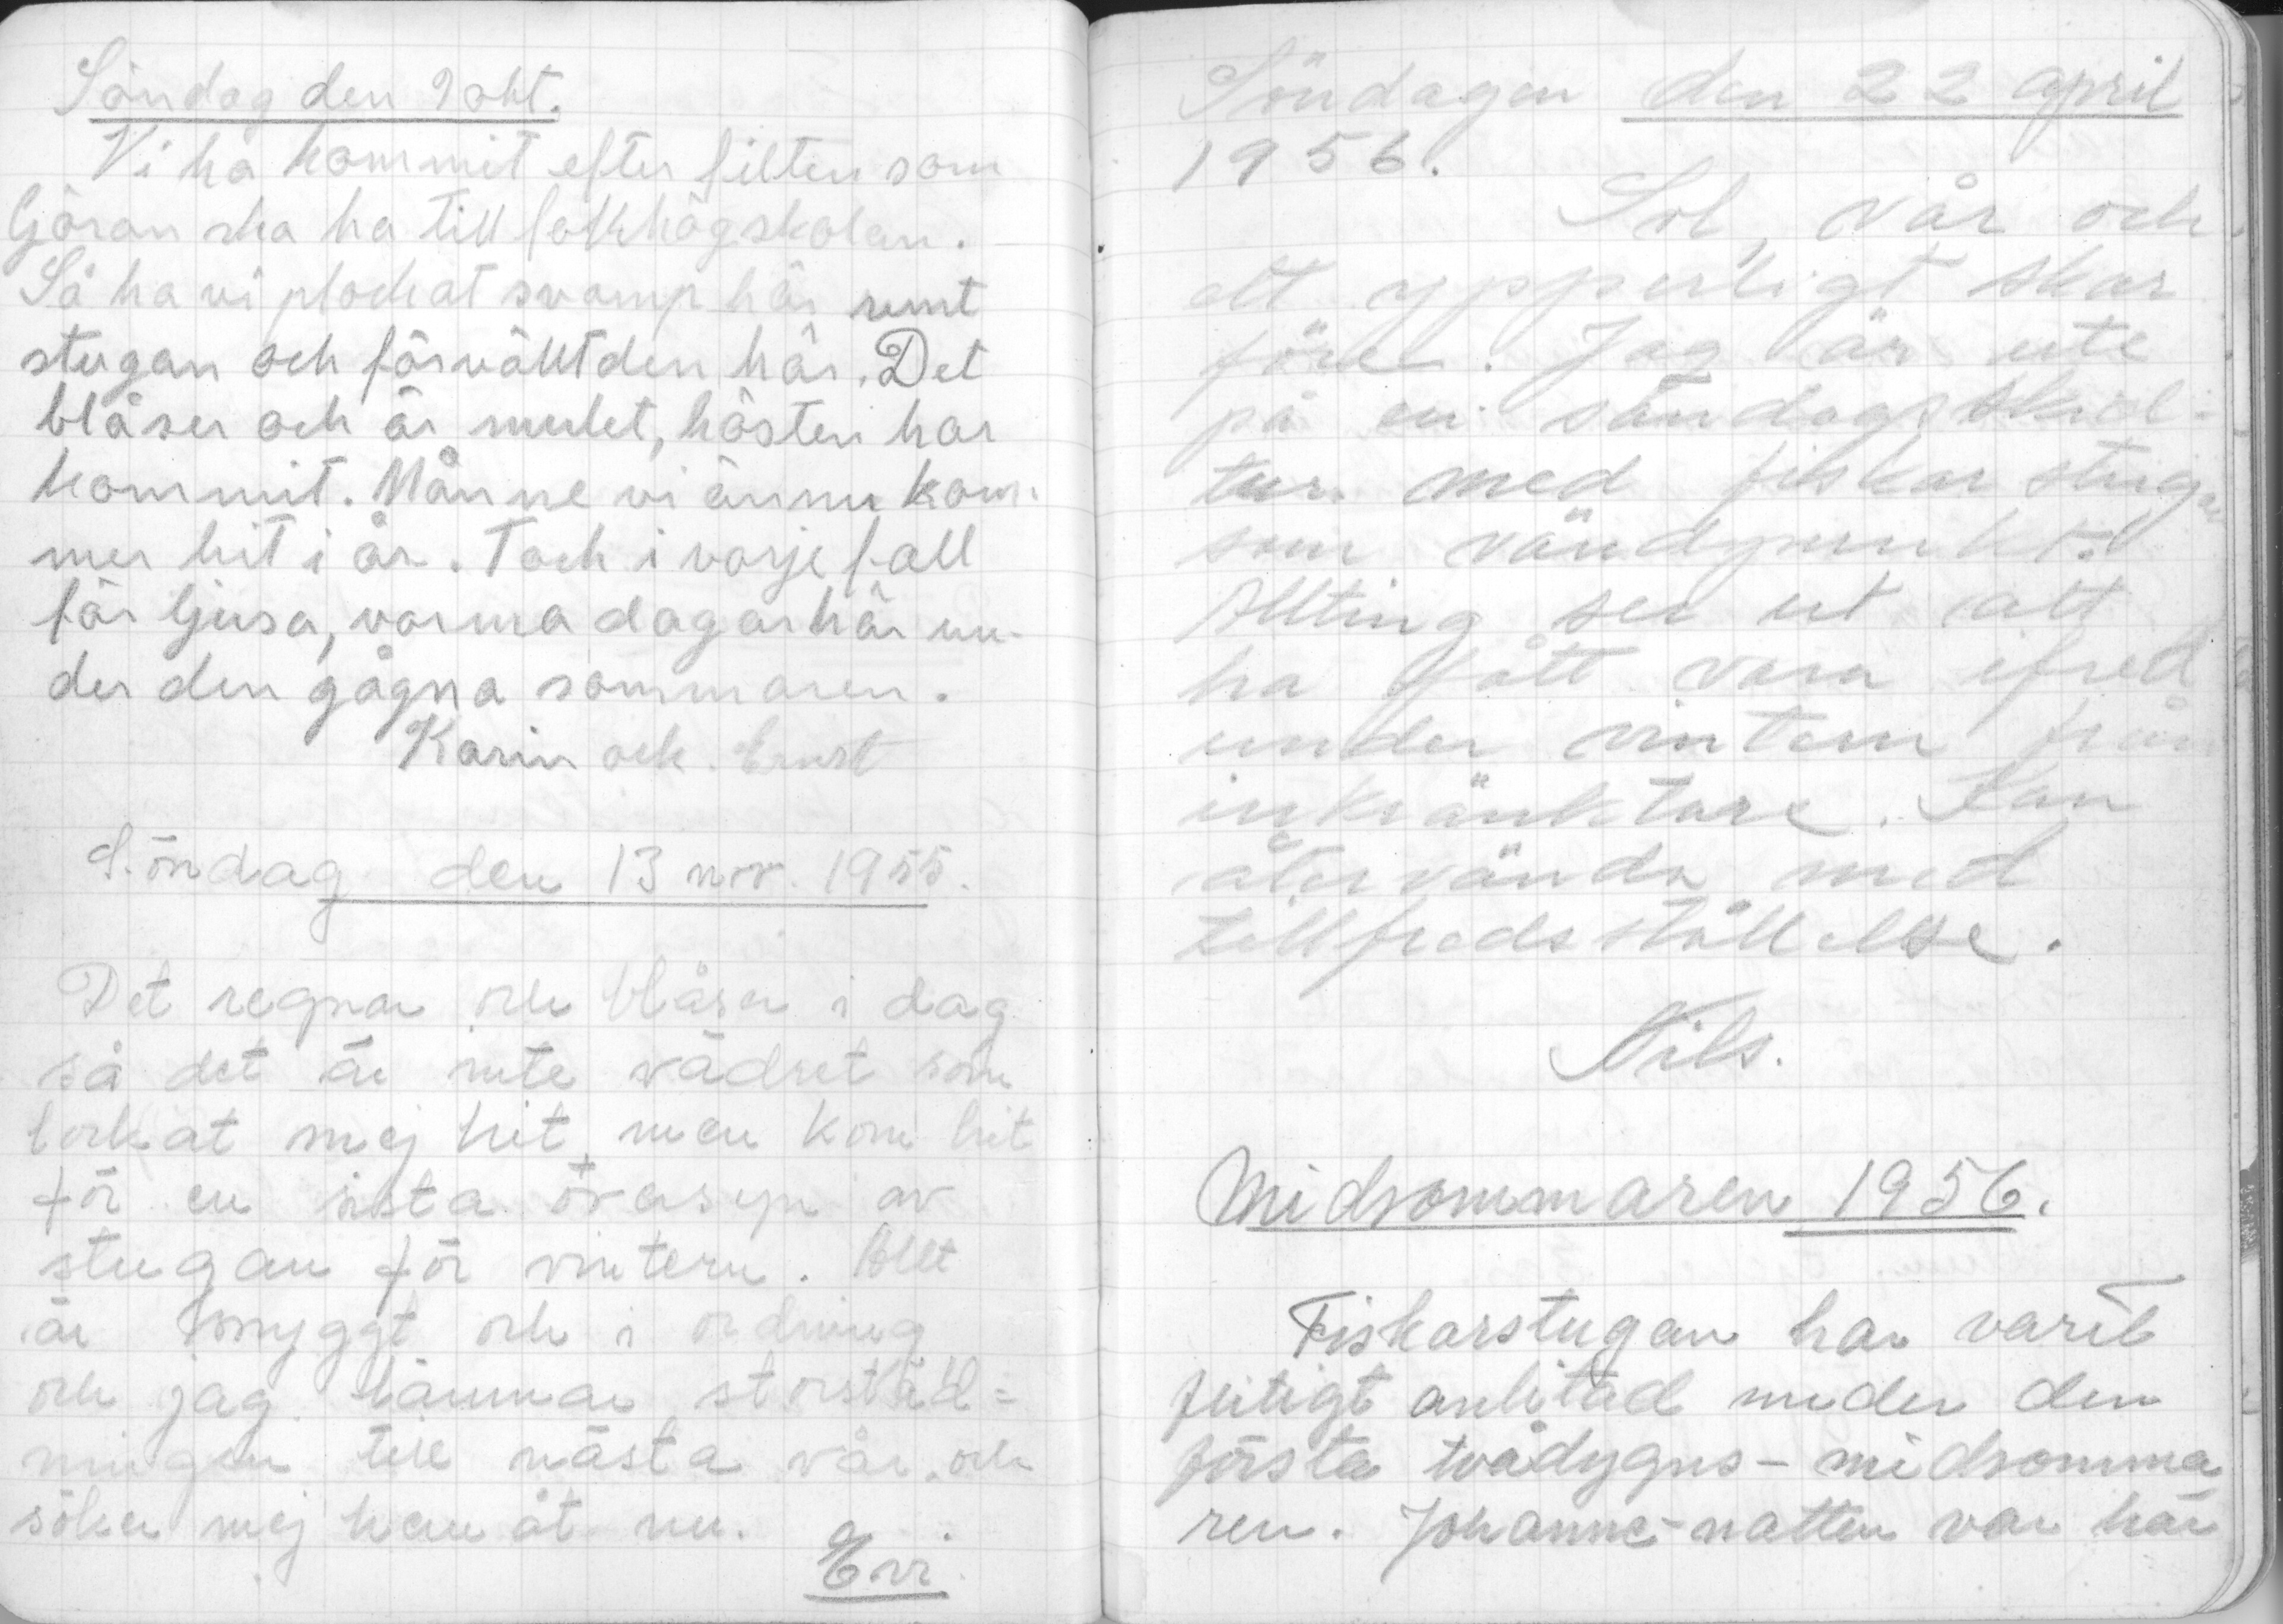 Söndag den 9 okt.
Vi ha kommit efter filten som
Göran ska ha till folkhögskolan.
Så ha vi plockat svamp här runt
stugan och förvällt den här. Det
blåser och är mulet, hösten har
kommit. Månne vi ännu kom-
mer hit i år. Tack i varje fall
för ljusa, varma dagar här un-
der den gågna sommaren.
Karin och Ernst
Söndag den 13 nov. 1955.
Det regnar och blåser i dag
så det är inte vädret som
lockat mej hit, men kom hit
för en sista översyn av
stugan för vintern. Allt
är snyggt och i ordning
och jag lämnar storstäd=
ningen till nästa vår och
söker mej hemåt nu.
Evi.
Söndagen den 22 april
1956.
Sol, vår och
ett ypperligt skar
före. Jag är ute
på en söndagsskid=
tur med fiskarstugan
som vändpunkt.
Allting ser ut att
ha fått vara ifred
under vintern från
inkräktare. Kan
återvända med
tillfredsställelse.
Nils.
Midsommaren 1956.
Fiskarstugan har varit
flitigt anlitad under den
första tvådygns-midsomma
ren. Johanne-natten var här